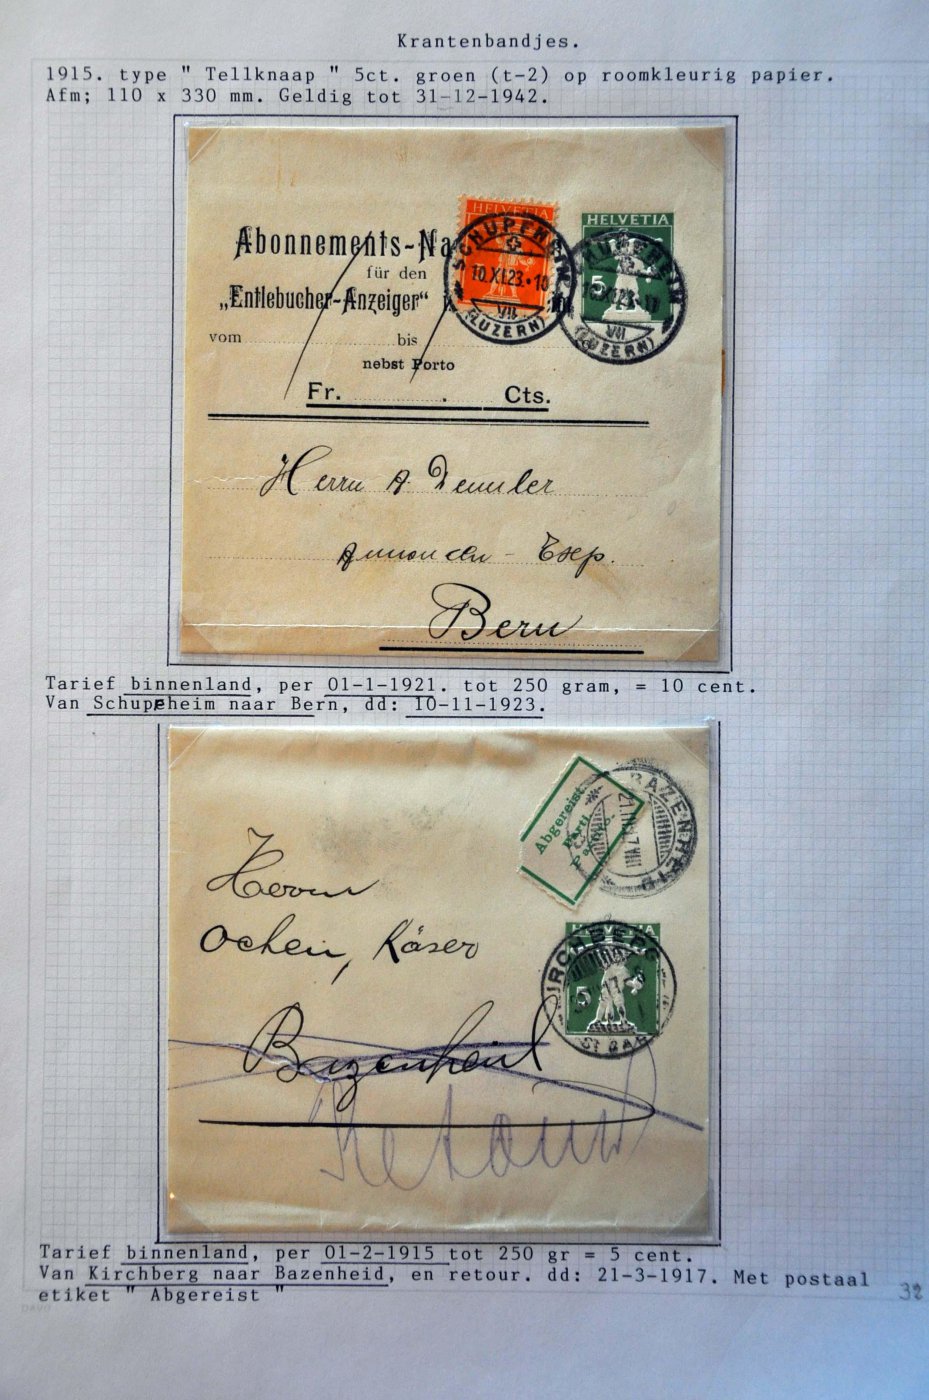 Krantenbandjes.
1915. type " Tellknaap " 5ct. groen (t-2) op roomkleurig papier.
Afm; 110 x 330 mm. Geldig tot 31-12-1942.
HELVETIA
HELVETIA
Abonnements-Na
SCHÜPFHEIM
10.XI.23.·10
VII
(LUZERN)
5
VII
(LUZERN)
für den
„Entlebucher-Anzeiger“
vom bis
nebst Porto
Fr. . Cts.
Herrn A. Demuler
Annoncen - Exp.
Bern
Tarief binnenland, per 01-1-1921. tot 250 gram, = 10 cent.
Van Schupfheim naar Bern, dd: 10-11-1923.
Abgereist.
Parti.
Partito.
BAZENHEID
Herrn
Ochen, Käser
HELVETIA
KIRCHBERG
5
ST GALL
Bazenheid
Retour
Tarief binnenland, per 01-2-1915 tot 250 gr = 5 cent.
Van Kirchberg naar Bazenheid, en retour. dd: 21-3-1917. Met postaal
etiket " Abgereist "
32
DAVO